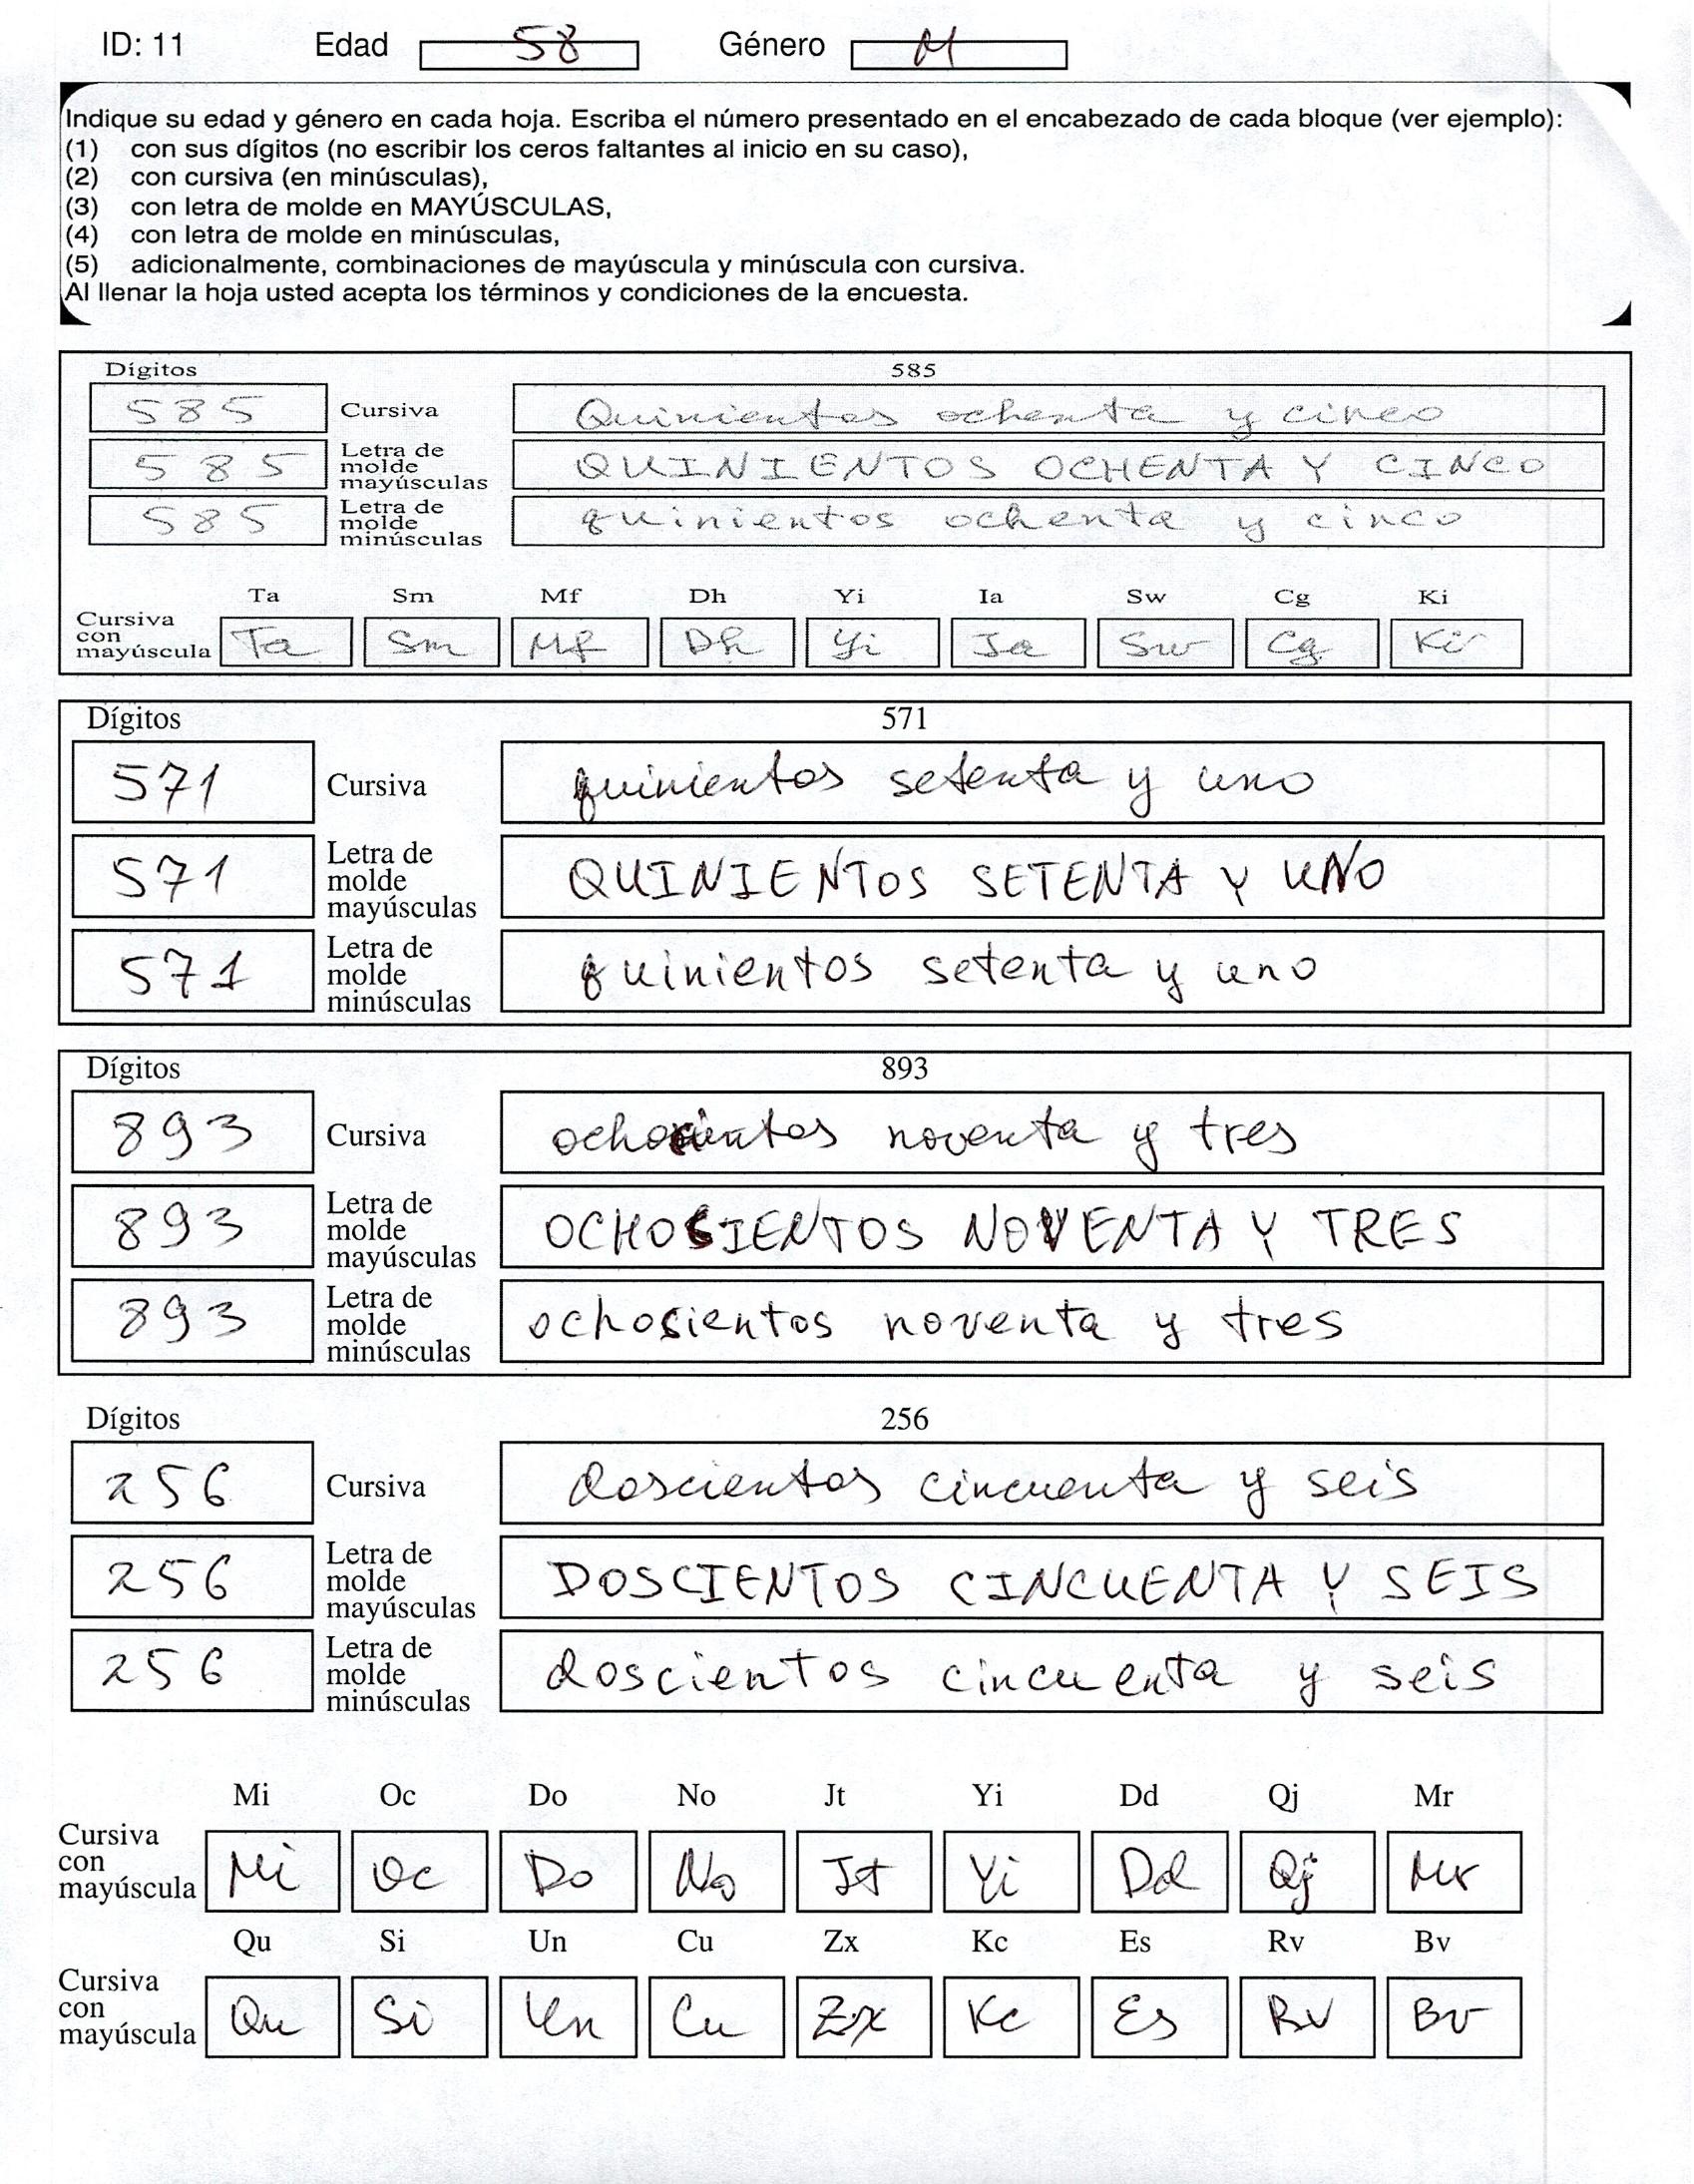 ID: 11 Edad 58 Género M
Indique su edad y género en cada hoja. Escriba el número presentado en el encabezado de cada bloque (ver ejemplo):
(1) con sus dígitos (no escribir los ceros faltantes al inicio en su caso),
(2) con cursiva (en minúsculas),
(3) con letra de molde en MAYÚSCULAS,
(4) con letra de molde en minúsculas,
(5) adicionalmente, combinaciones de mayúscula y minúscula con cursiva.
Al llenar la hoja usted acepta los términos y condiciones de la encuesta.
Dígitos 585
585 Cursiva Quinientos ochenta y cinco
585 Letra de molde mayúsculas QUINIENTOS OCHENTA Y CINCO
585 Letra de molde minúsculas quinientos ochenta y cinco
Ta Sm Mf Dh Yi Ia Sw Cg Ki
Cursiva con mayúscula Ta Sm Mf Dh Yi Ia Sw Cg Ki
Dígitos 571
571 Cursiva quinientos setenta y uno
571 Letra de molde mayúsculas QUINIENTOS SETENTA Y UNO
571 Letra de molde minúsculas quinientos setenta y uno
Dígitos 893
893 Cursiva ochocientos noventa y tres
893 Letra de molde mayúsculas OCHOCIENTOS NOVENTA Y TRES
893 Letra de molde minúsculas ochocientos noventa y tres
Dígitos 256
256 Cursiva doscientos cincuenta y seis
256 Letra de molde mayúsculas DOSCIENTOS CINCUENTA Y SEIS
256 Letra de molde minúsculas doscientos cincuenta y seis
Mi Oc Do No Jt Yi Dd Qj Mr
Cursiva con mayúscula Mi Oc Do No Jt Yi Dd Qj Mr
Qu Si Un Cu Zx Kc Es Rv Bv
Cursiva con mayúscula Qu Si Un Cu Zx Kc Es Rv Bv